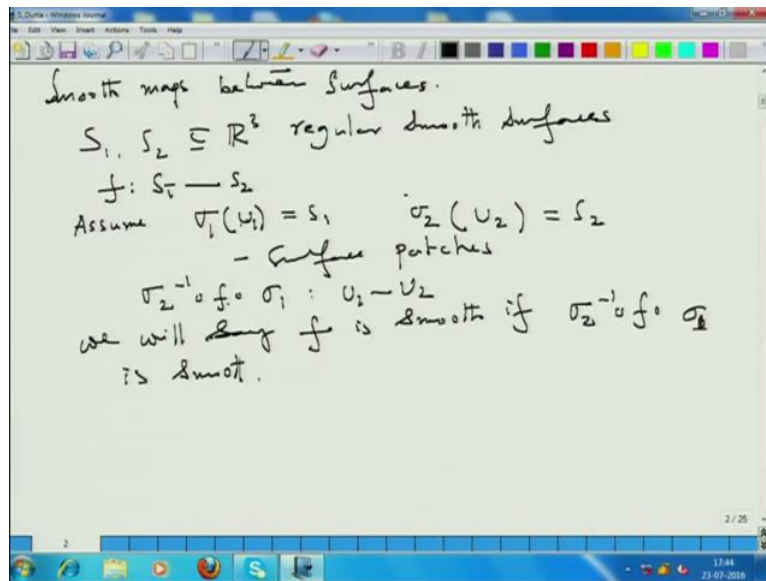 S_Dutta - Windows Journal
File Edit View Insert Actions Tools Help
Smooth maps between Surfaces.
S₁, S₂ ⊆ ℝ³ regular smooth surfaces
f: S₁ — S₂
Assume σ₁(U₁) = S₁ σ₂(U₂) = S₂
- Surface patches
σ₂⁻¹∘f∘σ₁ : U₁ — U₂
we will say f is smooth if σ₂⁻¹∘f∘σ₁
is smoot.
2 / 25
2
17:44
23-07-2016